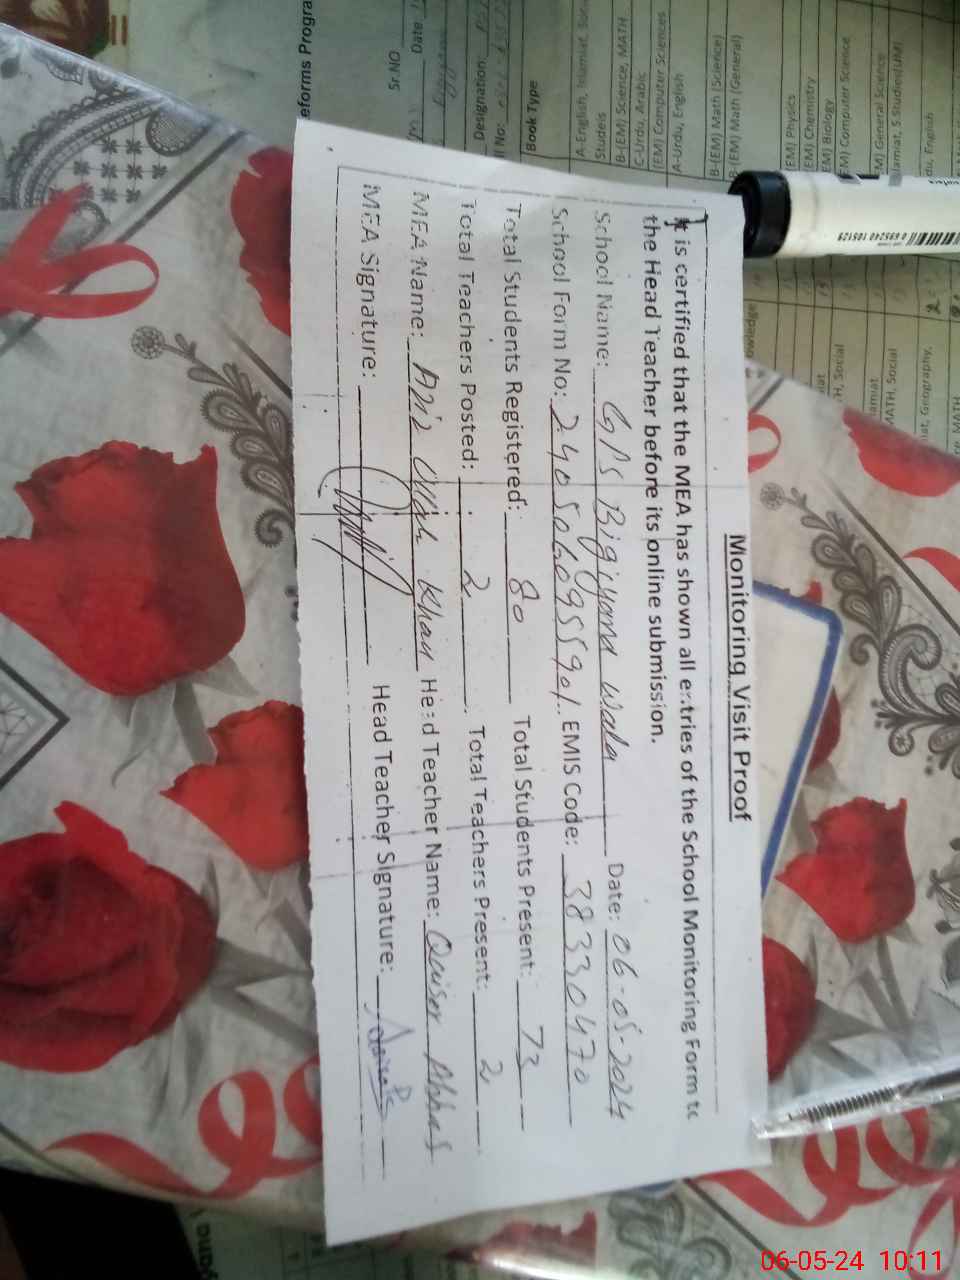 Monitoring Visit Proof
It is certified that the MEA has shown all entries of the School Monitoring Form to
the Head Teacher before its online submission.
School Name: GPS Bigiyana wala Date: 06-05-2024
School Form No: EMIS Code: 38330470
Total Students Registered: 80 Total Students Present: 73
Total Teachers Posted: 2 Total Teachers Present: 2
MEA Name: Khan Head Teacher Name: Qaiser Abbas
MEA Signature: Head Teacher Signature:
eforms Progra
Sr.NO
Date
Designation:
No:
Book Type
A-English, Islamiat,
Studies
B-(EM) Science, MATH
C-Urdu, Arabic
(EM) Computer Sciences
A-Urdu, English
B-(EM) Math (Science)
B-(EM) Math (General)
EM) Physics
EM) Chemistry
EM) Biology
EM) Computer Science
EM) General Science
lamiat, S.Studies(UM)
du, English
H, Social
MATH, Social
iat, Geography,
6 935240 105129
06-05-24 10:11